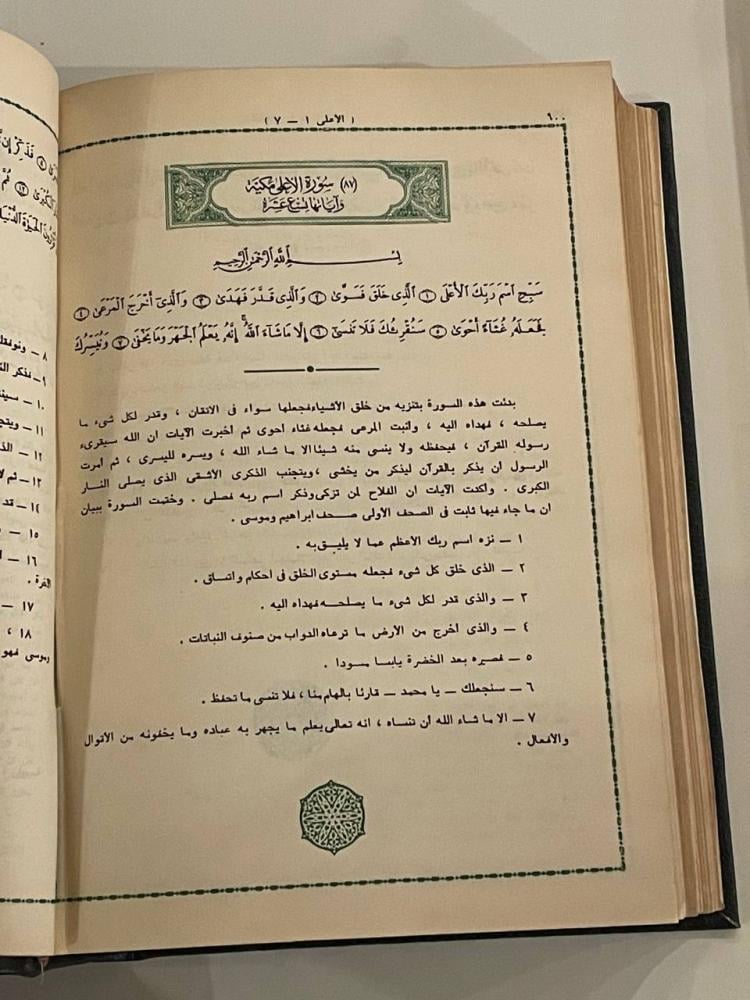 ٦٠٠
( الأعلى ١ — ٧ )
(٨٧) سورة الأعلى مكية
وآياتها تسع عشرة
بسم الله الرحمن الرحيم
سَبِّحِ اسْمَ رَبِّكَ الْأَعْلَى ١ الَّذِي خَلَقَ فَسَوَّىٰ ٢ وَالَّذِي قَدَّرَ فَهَدَىٰ ٣ وَالَّذِي أَخْرَجَ الْمَرْعَىٰ ٤
فَجَعَلَهُ غُثَاءً أَحْوَىٰ ٥ سَنُقْرِئُكَ فَلَا تَنسَىٰ ٦ إِلَّا مَا شَاءَ اللَّهُ إِنَّهُ يَعْلَمُ الْجَهْرَ وَمَا يَخْفَىٰ ٧ وَنُيَسِّرُكَ
بدئت هذه السورة بتنزيه من خلق الأشياء فجعلها سواء فى الاتقان ، وقدر لكل شىء ما
يصلحه ، فهداه اليه ، وأنبت المرعى فجعله غثاء أحوى ثم أخبرت الآيات ان الله سيقرىء
رسوله القرآن ، فيحفظه ولا ينسى منه شيئا الا ما شاء الله ، وييسره لليسرى ، ثم أمرت
الرسول ان يذكر بالقرآن ليذكر من يخشى ، ويتجنب الذكرى الأشقى الذى يصلى النار
الكبرى . وأكدت الآيات ان الفلاح لمن تزكى وذكر اسم ربه فصلى . وختمت السورة ببيان
ان ما جاء فيها ثابت فى الصحف الأولى صحف ابراهيم وموسى .
١ — نزه اسم ربك الأعظم عما لا يليق به .
٢ — الذى خلق كل شىء فجعله مستوى الخلق فى أحكام واتساق .
٣ — والذى قدر لكل شىء ما يصلحه فهداه اليه .
٤ — والذى أخرج من الأرض ما ترعاه الدواب من صنوف النباتات .
٥ — فصيره بعد الخضرة يابسا مسودا .
٦ — سنجعلك — يا محمد — قارئا بالهام منا ، فلا تنسى ما تحفظ .
٧ — الا ما شاء الله أن تنساه ، انه تعالى يعلم ما يجهر به عباده وما يخفونه من الأقوال
والأفعال .